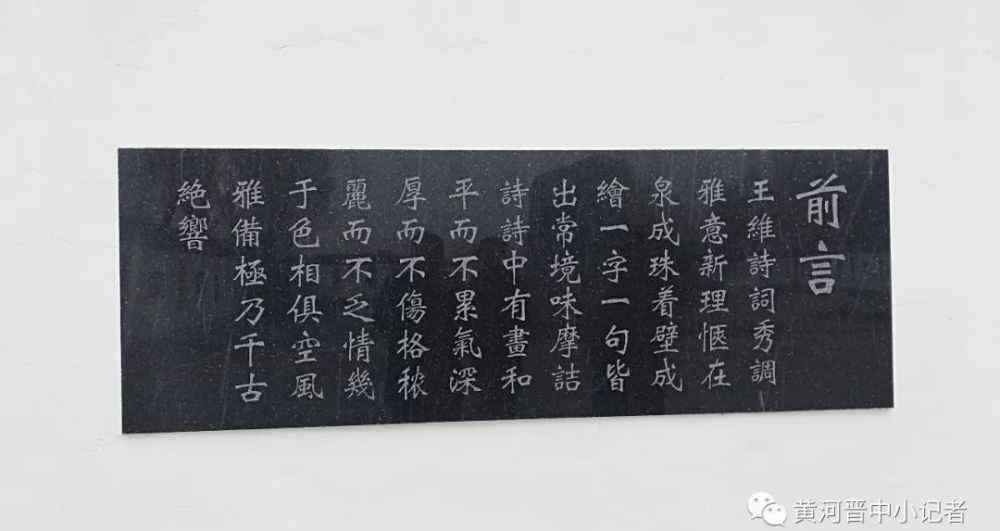 前言
王維詩詞秀調
雅意新理愜在
泉成珠着壁成
繪一字一句皆
出常境味摩詰
詩詩中有畫和
平而不累氣深
厚而不傷格穠
麗而不乏情幾
于色相俱空風
雅備極乃千古
絶響
黄河晋中小记者